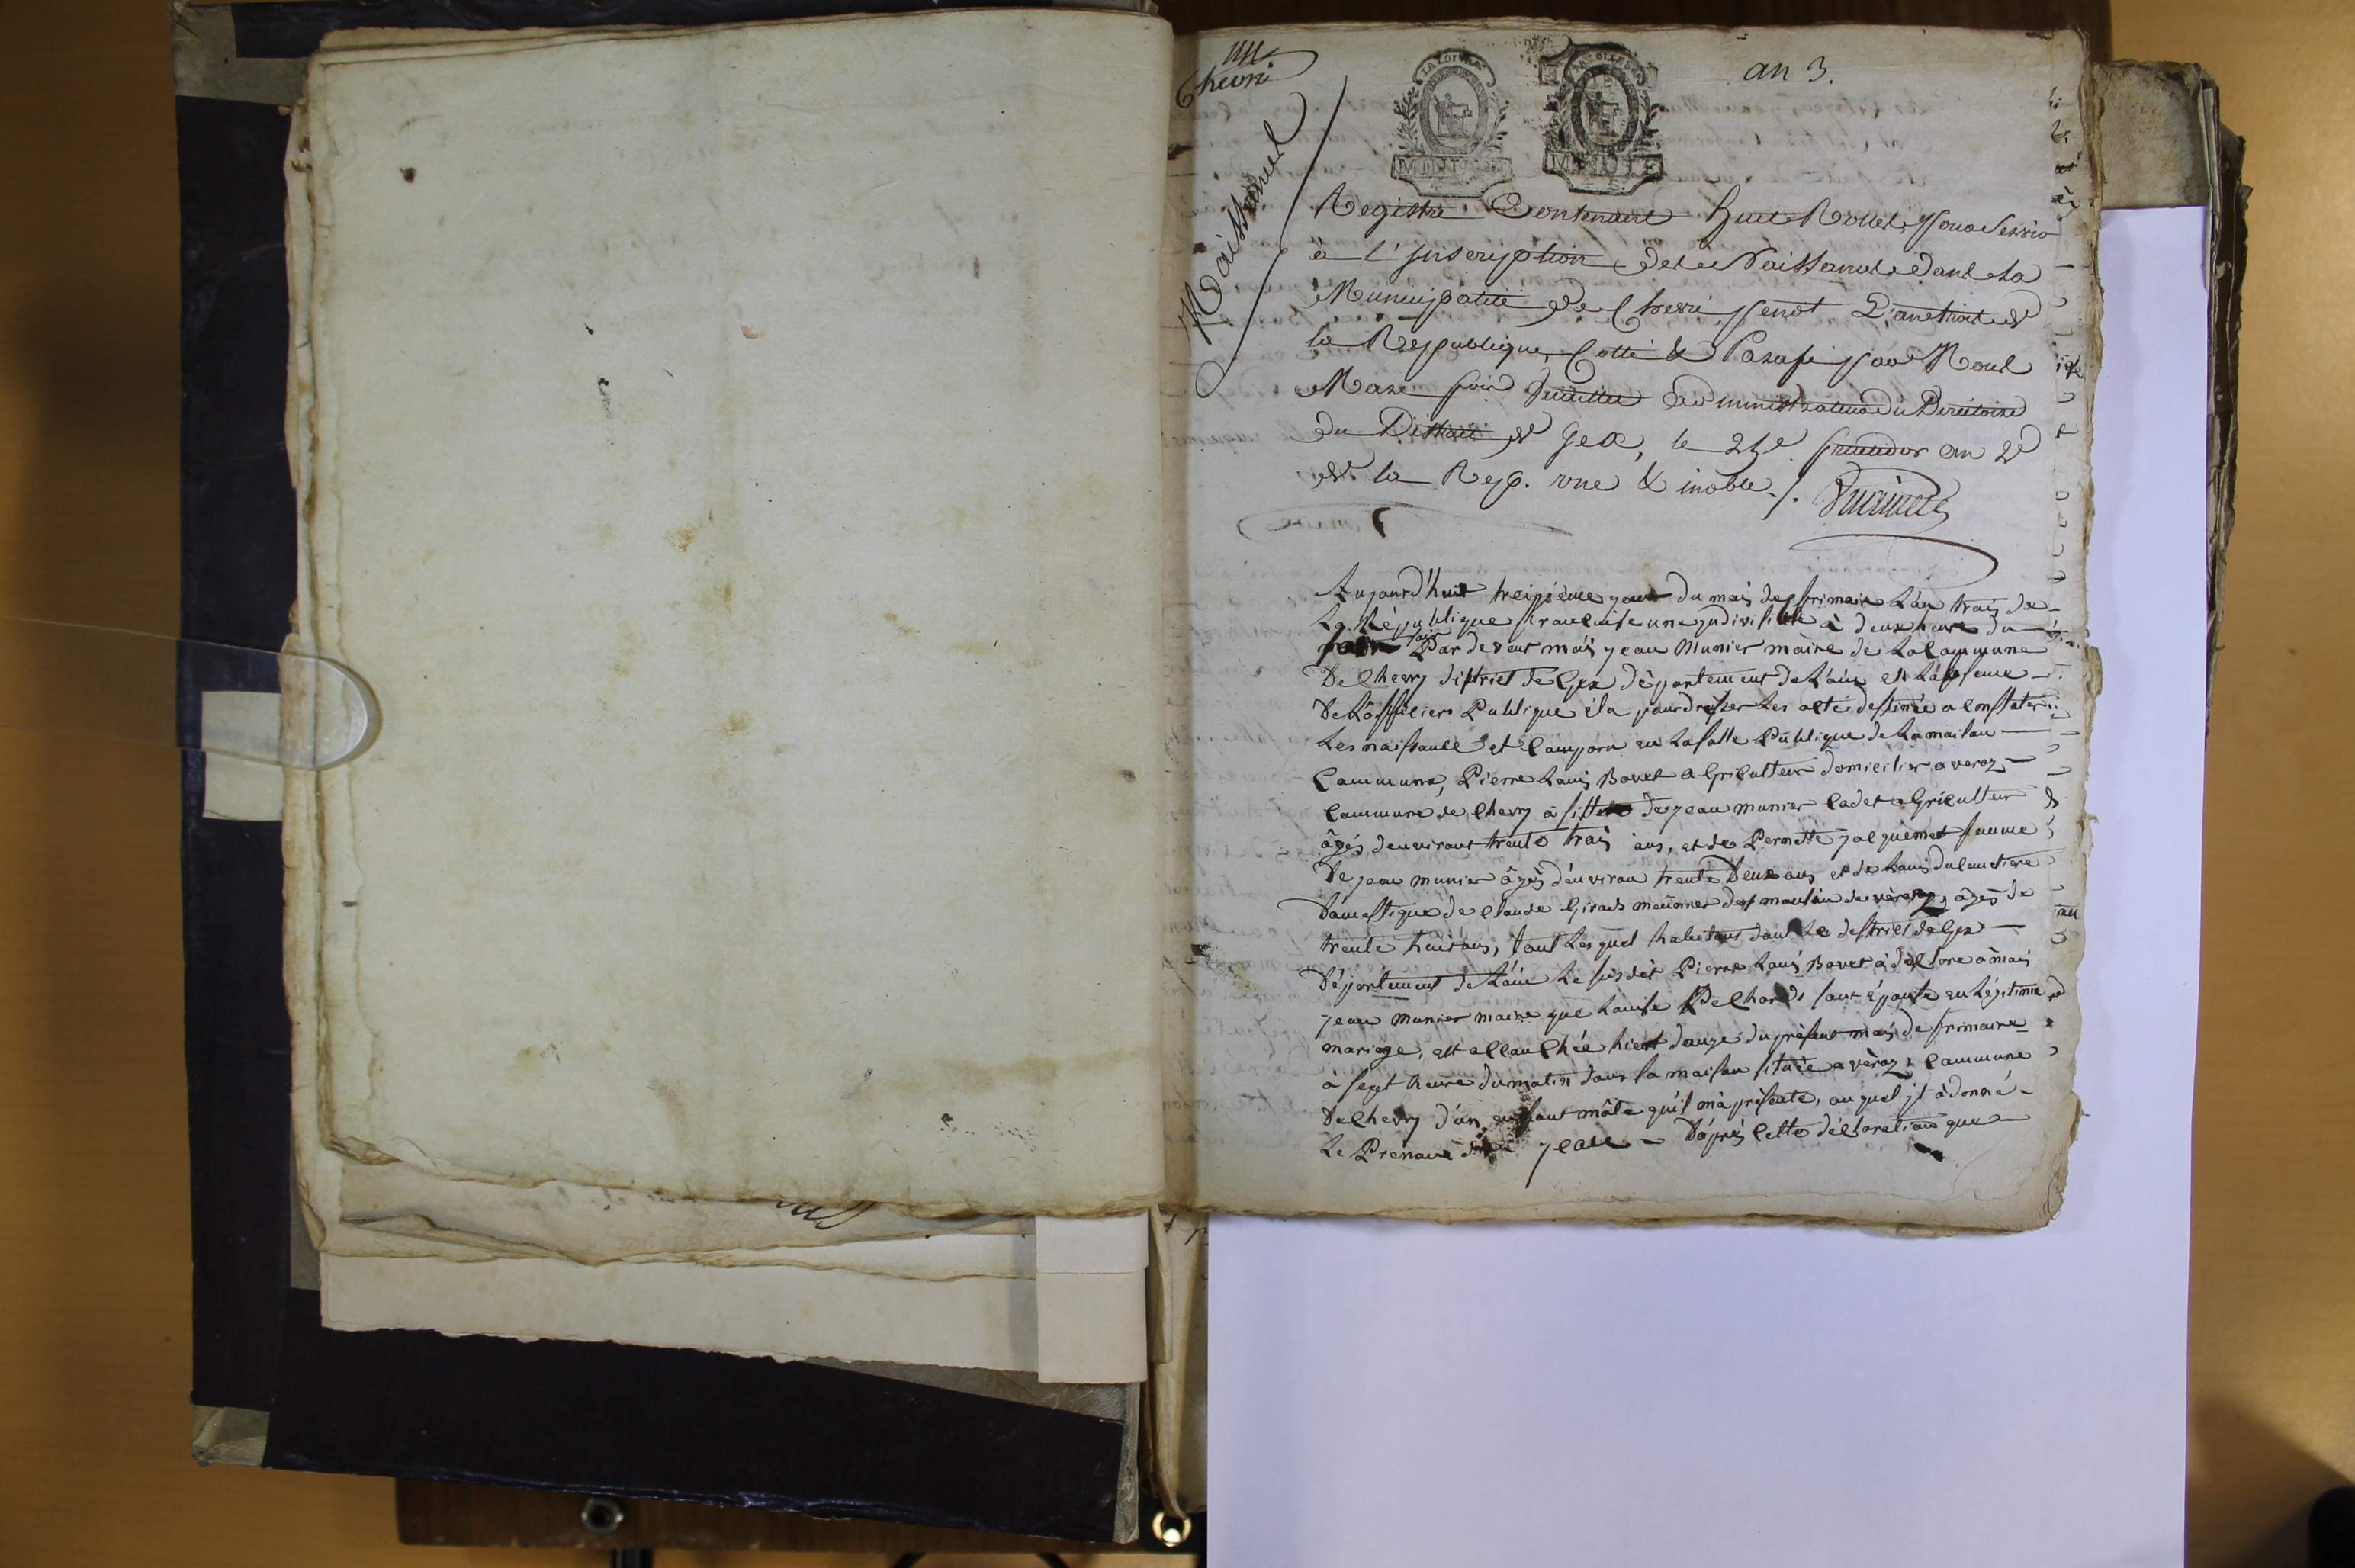 an 3.
Cheuri
Naissances
MINUTE
Registre Contenant huit Rolles pour servir
à l'inscription des Naissances dans la
Municipalité de Chevri pendt L'an trois de
la Republique, Cotté & Parafé par Nous
administrateur du Directoire
du District de Gex, le fructidor an 2e
de la Rep. une & indble ./.
Aujourd'huit treizième jour du mois de frimaire L'an trois de
La République francaise une jndivisible à deux heure du
soir Par devant moi jean Munier maire de La Commune
De Chevry district de Gex département de L'ain en L'absence
De L'officiers Publique éla pour drésser Les acte destinée a constater
Les naissance et comparu en La salle Publique de La maison
Commune, Pierre Louis Bovet agriculteur domicilier a veraz
Commune de Chevry assisté de jean munier cadet agriculteur
âgés d'environt trente trois ans, et de Pernette jacquemet femme
De jean munier âgés d'environ trente Deux ans et de Louis
Domestique de Claude Girod meunier des moulin de véraz, âgés de
trente huit ans, tout Les quel habitant dans Le district de Gex
Département de L'ain Le susdit Pierre Louis Bovet à déclaré à moi
jean munier maire que Louise Pelhard sont épouse en Légitime
mariage, est accouchée hiert douze du présent mois de frimaire
à sept heure du matin dans sa maison située a véraz, Commune
De Chevry d'un enfant mâle qu'il m'à présenté, au quel jl à donné
Le Prénom de jean D'après cette déclaration que